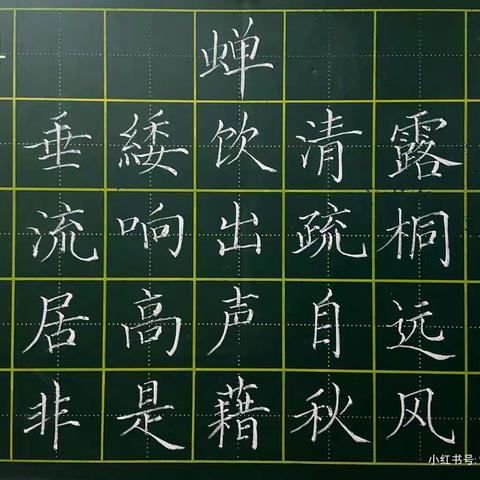 蝉
垂緌饮清露
流响出疏桐
居高声自远
非是藉秋风
小红书号: